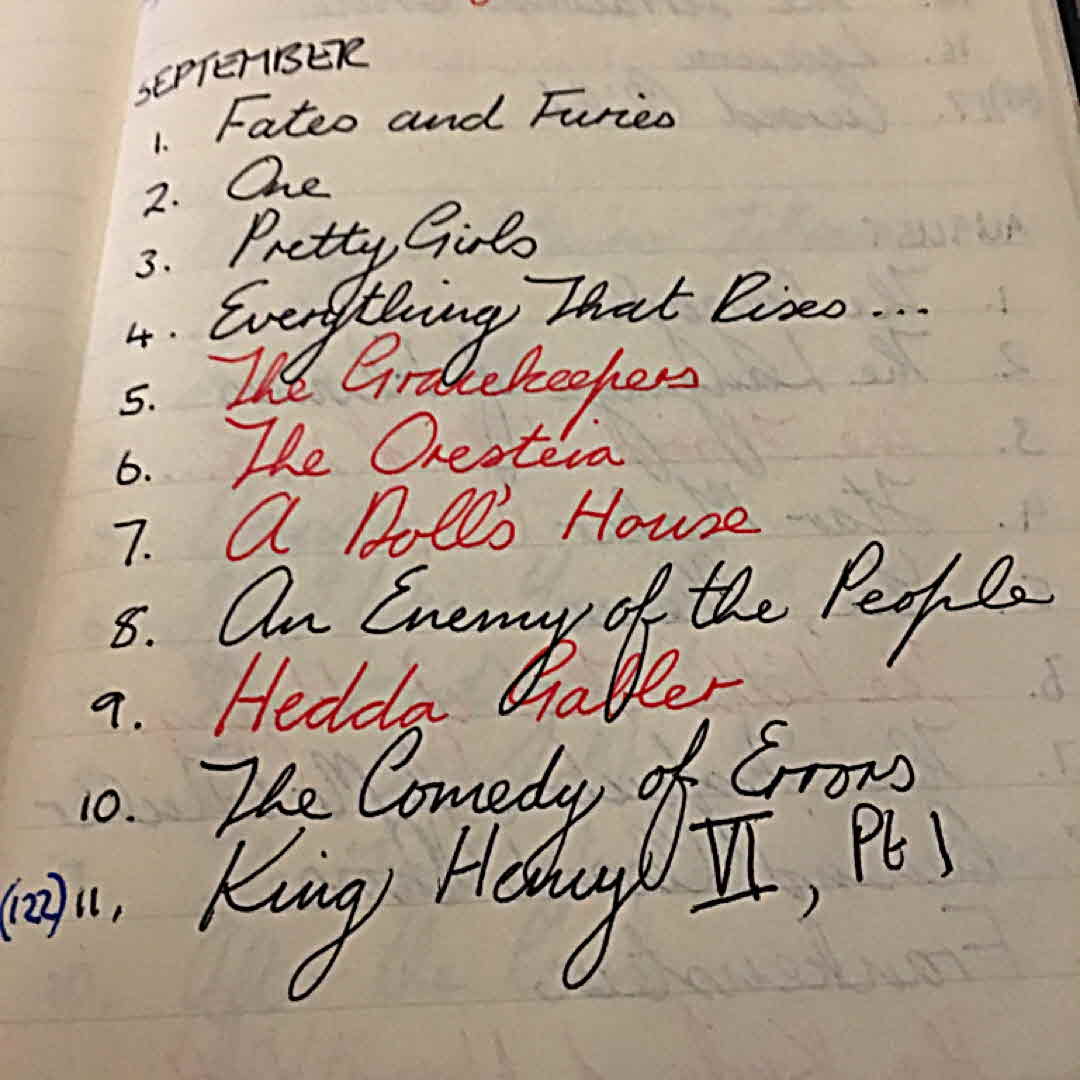 SEPTEMBER
1. Fates and Furies
2. One
3. Pretty Girls
4. Everything That Rises...
5. The Gracekeepers
6. The Oresteia
7. A Doll's House
8. An Enemy of the People
9. Hedda Gabler
10. The Comedy of Errors
(122) 11, King Henry VI, Pt 1